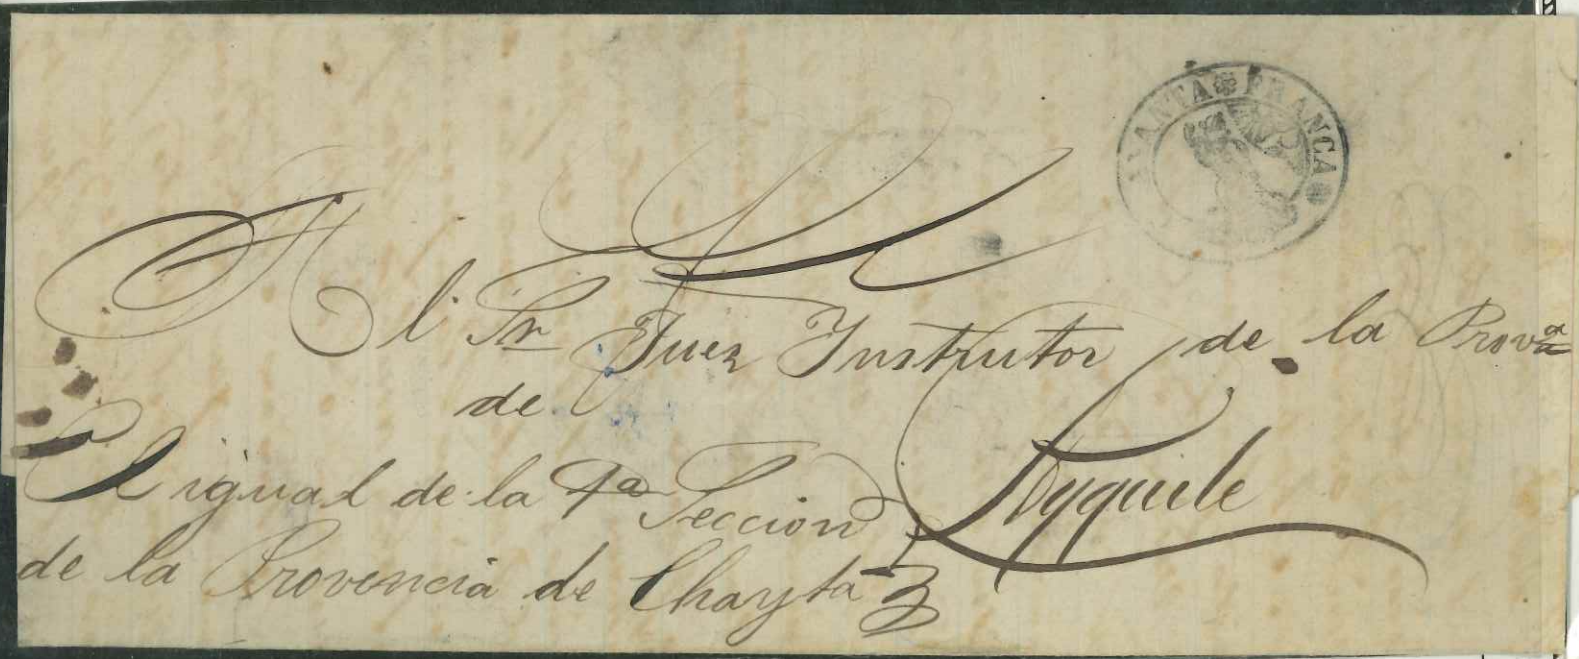 ANTA FRANCA
Al Sr Juez Instrutor de la Provª
de
Ayquile
El igual de la 1ª Seccion
de la Provencia de Chayta